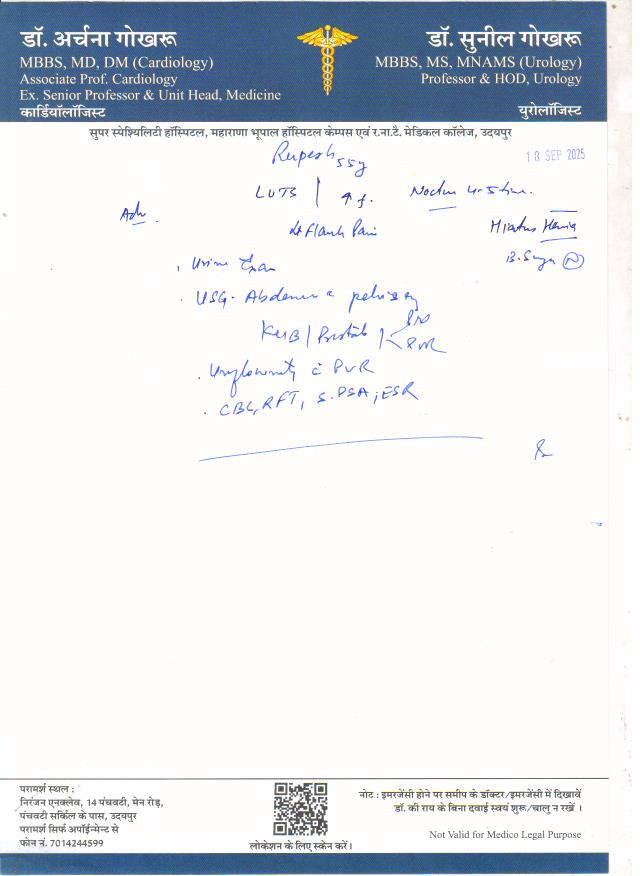 डॉ. अर्चना गोखरू
MBBS, MD, DM (Cardiology)
Associate Prof. Cardiology
Ex. Senior Professor & Unit Head, Medicine
कार्डियॉलॉजिस्ट
डॉ. सुनील गोखरू
MBBS, MS, MNAMS (Urology)
Professor & HOD, Urology
युरोलॉजिस्ट
सुपर स्पेश्यिलिटी हॉस्पिटल, महाराणा भूपाल हॉस्पिटल केम्पस एवं र.ना.टै. मेडिकल कॉलेज, उदयपुर
Rupesh 55y
18 SEP 2025
LUTS | ↑ f. Noctu 4-5 time.
Adv.
Lt Flank Pain
Hiatus Hernia
B. Sugar (N)
. Urine Exam
. USG. Abdomen & pelvis
KUB / Prostate / PVR
. Uroflowmetry c̄ PVR
. CBC, RFT, S. PSA, ESR
परामर्श स्थल :
निरंजन एनक्लेव, 14 पंचवटी, मेन रोड़,
पंचवटी सर्किल के पास, उदयपुर
परामर्श सिर्फ अपॉईन्मेन्ट से
फोन नं. 7014244599
लोकेशन के लिए स्केन करें।
नोट : इमरजेंसी होने पर समीप के डॉक्टर/इमरजेंसी में दिखावें
डॉ. की राय के बिना दवाई स्वयं शुरू/चालु न रखें ।
Not Valid for Medico Legal Purpose